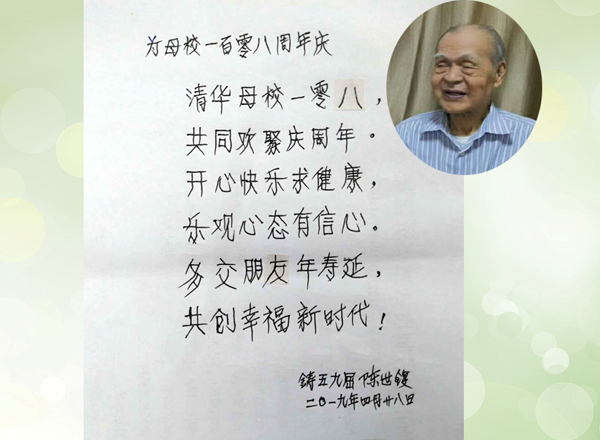 为母校一百零八周年庆
清华母校一零八，
共同欢聚庆周年。
开心快乐求健康，
乐观心态有信心。
多交朋友年寿延，
共创幸福新时代！
铸五九届 陈世
二〇一九年四月廿八日